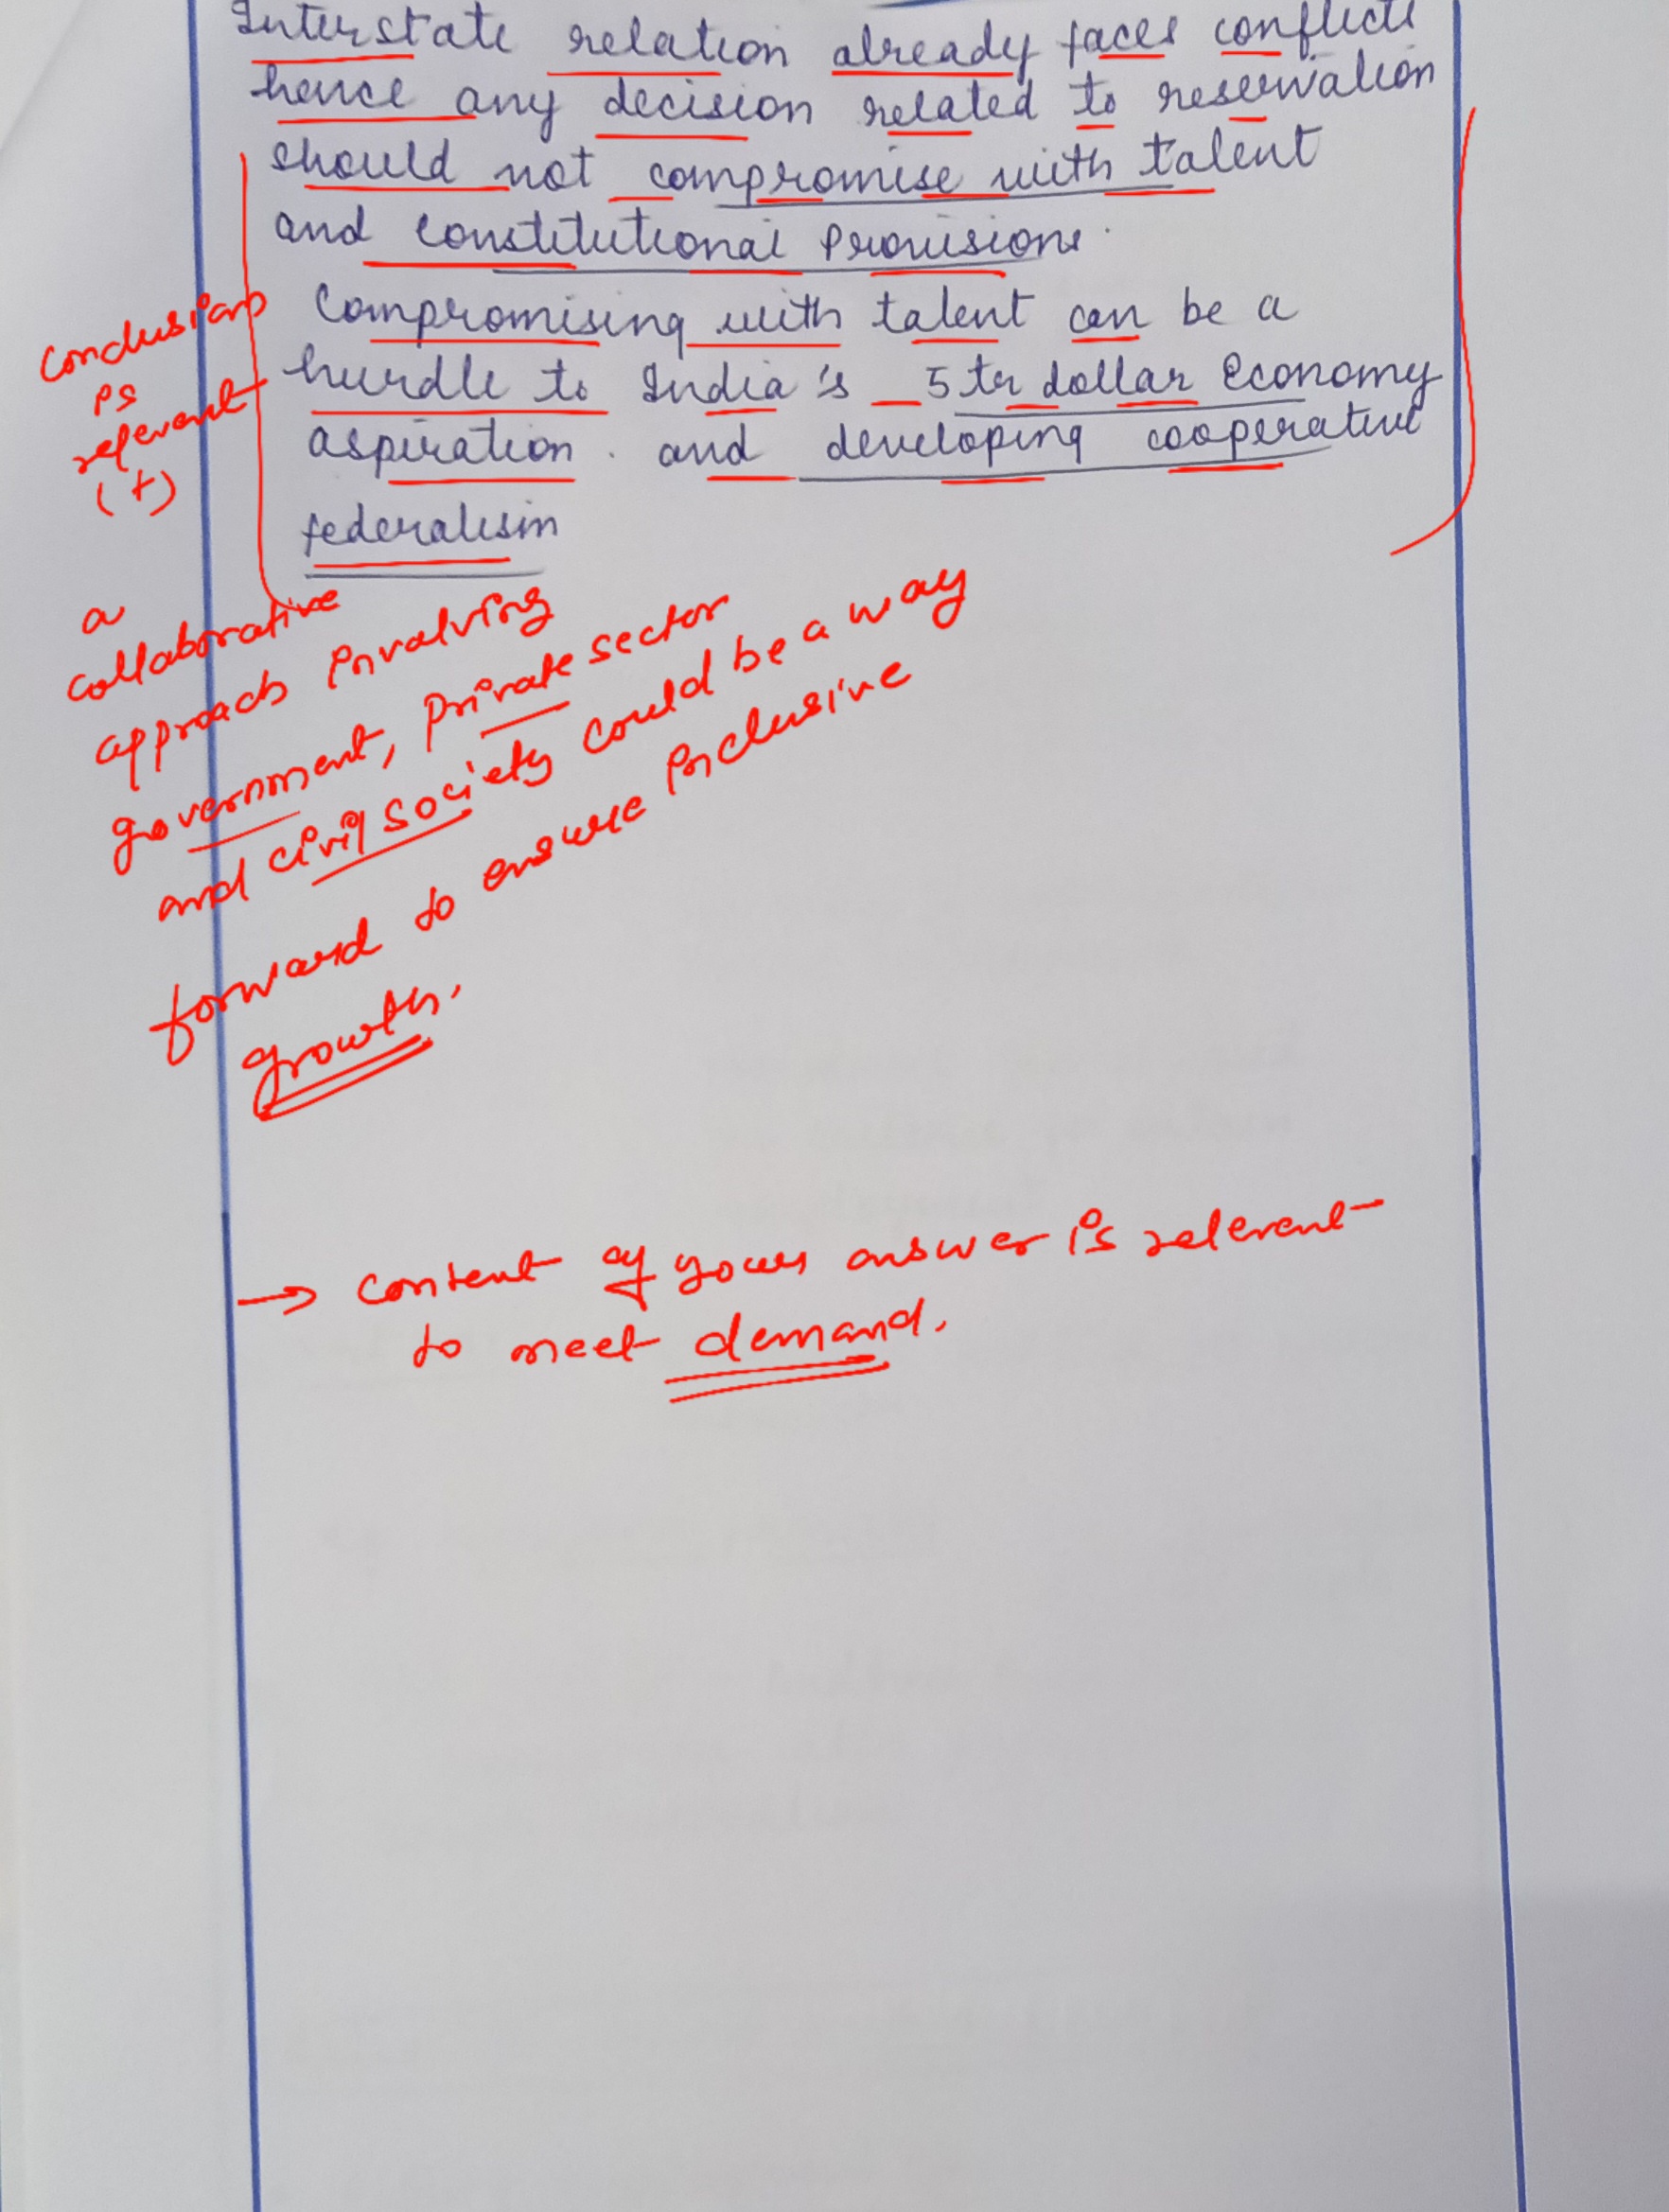 Interstate relation already faces conflicts
hence any decision related to reservation
should not compromise with talent
and constitutional provisions.
Compromising with talent can be a
hurdle to India's 5 tr dollar economy
aspiration and developing cooperative
federalism
Conclusion
is
relevant
(+)
a
collaborative
approach involving
government, private sector
and civil society could be a way
forward to ensure inclusive
growth.
→ content of your answer is relevant
to meet demand.